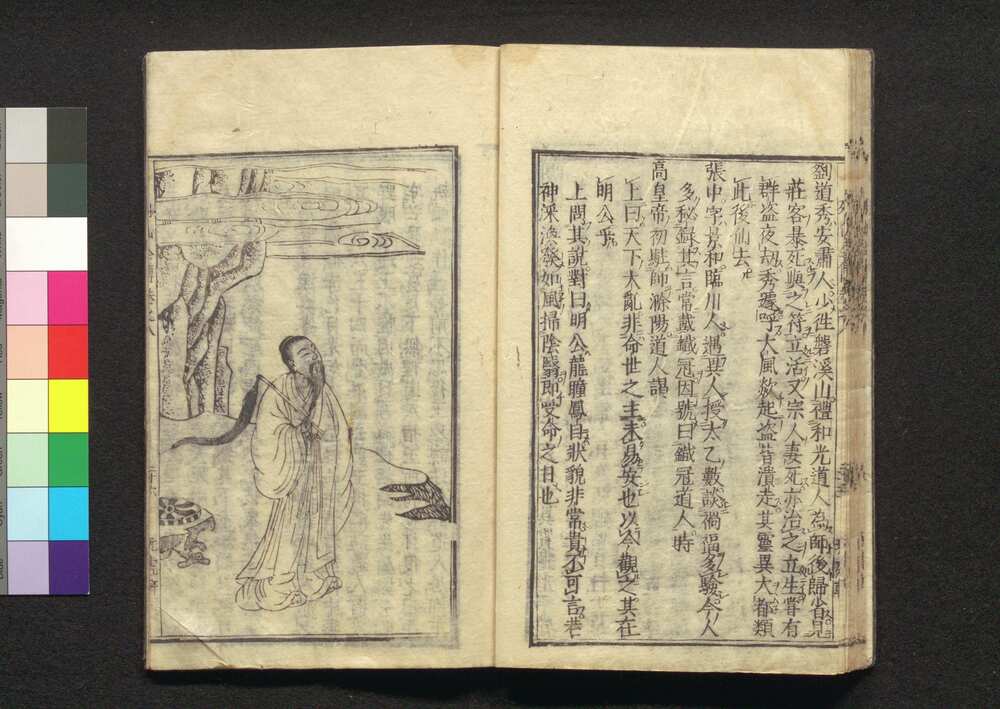 劉道秀安肅人少徃磐溪山禮和光道人為師後歸省見
莊客暴死與之符立活又宗人妻死亦治之立生嘗有
群盗夜劫秀據呼大風欻起盗昔潰走其靈異大都類
此後仙去
張中字景和臨川人遇異人授太乙數談禍福多驗今人
多秘錄其言常戴鐵冠因號曰鐵冠道人時
高皇帝初駐師滁陽道人謁
上曰天下大亂非命世之主未易安也以今觀之其在
明公乎
上問其說對曰明公龍瞳鳳目狀貌非常貴不可言若
神采渙發如風掃陰翳即受命之日也